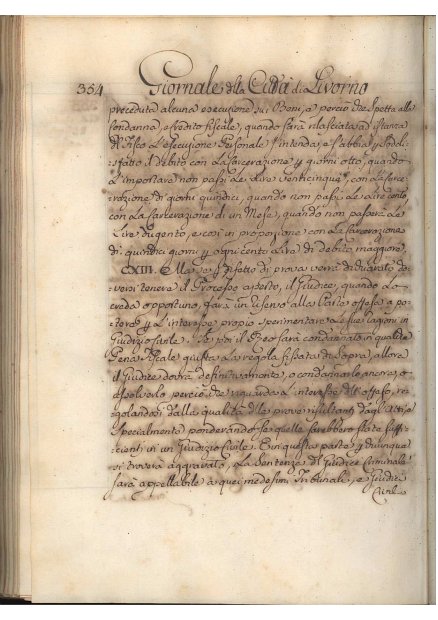 354 Giornale della Città di Livorno
preceduta alcuna esecuzione sui Beni, e perciò che spetta alla
condanna, e Credito fiscale, quando sarà rilasciata ad istanza
del Fisco L'esecuzione Personale s'intenda, e s'abbia p. sodi-
sfatto il debito con La Carcerazione p. giorni otto, quando
L'importare non passi Le Lire Venticinque, con La Carce-
razione di giorni quindici, quando non passi Le Lire cento,
con La Carcerazione di un Mese, quando non passerà Le
Lire Dugento, e così in proporzione con La Carcerazione
di quindici giorni p. ogni cento Lire di debito maggiore.
CXIII. Allor che p. difetto di prova verrà dichiarato do-
versi tenere il Processo aperto, il Giudice, quando Lo
creda opportuno, farà un riservo alla Parte offesa a po-
tere p. L'interesse proprio sperimentare Le sue ragioni in
Giudizio Civile. Se poi il Reo sarà condannato in qualche
Pena Fiscale giusta La regola fissata di sopra, allora
il Giudice dovrà definitivamente, o condannarlo ancora, o
assolverlo perciò che riguarda L'interesse dell'offeso, re-
golandosi dalla qualità delle prove resultanti dagli Atti, e
specialmente ponderando se quelle sarebbero state suffi-
cienti in un Giudizio Civile. E in questa parte p. chiunque
si troverà aggravato, La Sentenza del Giudice Criminale
sarà appellabile a quei medesimi Tribunali, e Giudici
Civili